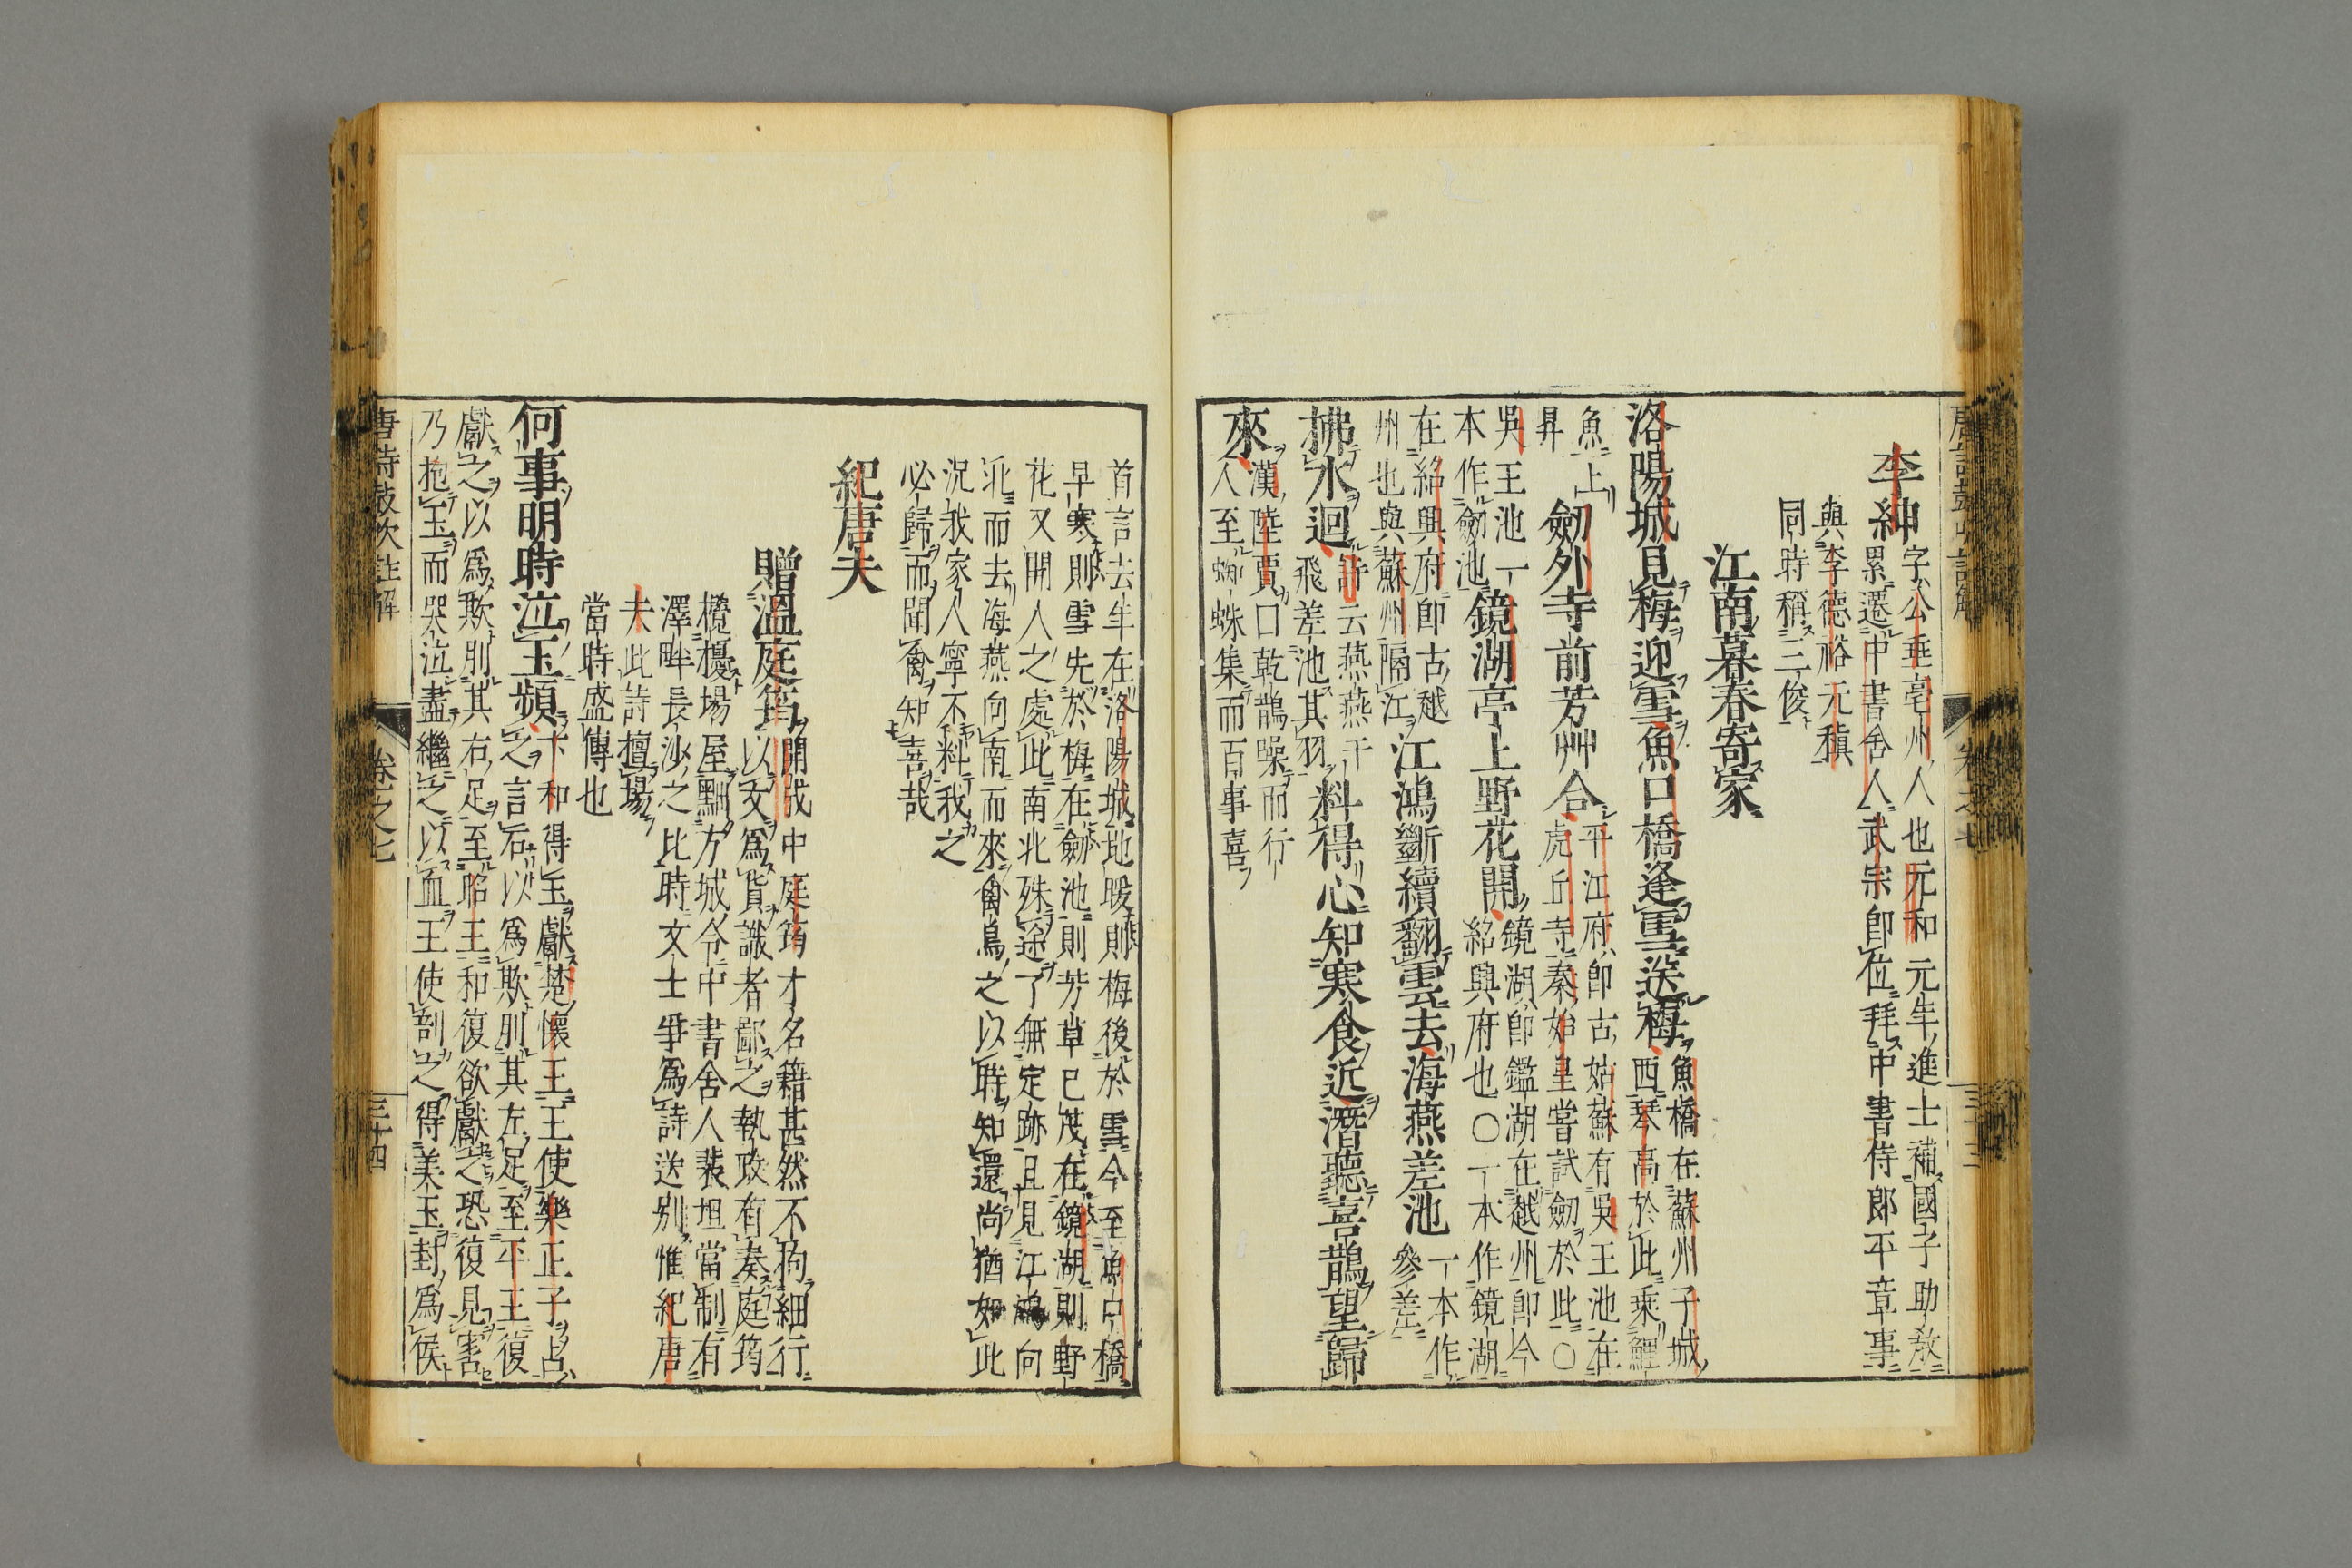 李紳
字公垂亳州人也元和元年進士補國子助敎
累遷中書舍人武宗卽位拜中書侍郞平章事
與李德裕元稹
同時稱三俊
江南暮春寄家
洛陽城見梅迎雪魚口橋逢雪送梅
魚橋在蘇州子城
西琴高於此乘鯉
魚上
昇
劒外寺前芳艸合
平江府卽古姑蘇有吳王池在
虎丘寺秦始皇嘗試劒於此○
吳王池一
本作劒池
鏡湖亭上野花開
鏡湖卽鑑湖在越州卽今
紹興府也○一本作鏡湖
在紹興府卽古越
州也與蘇州隔江
江鴻斷續翻雲去海燕差池
一本作
參差
拂水迴
許云燕燕于
飛差池其羽
料得心知寒食近潛聽喜鵲望歸
來
漢陸賈口乾鵲噪而行
人至蜘蛛集而百事喜
唐詩鼓吹註解 卷之七 三十三
首言去年在洛陽城地暖則梅後於雪今至魚口橋
早寒則雪先於梅在劒池則芳草已茂在鏡湖則野
花又開人之處此南北殊途了無定跡且見江鴻向
北而去海燕向南而來禽鳥之以時知還尚猶如此
況我家人寧不料我之
必歸而聞禽知喜哉
紀唐夫
贈溫庭筠
開成中庭筠才名籍甚然不拘細行
以文爲貨識者鄙之執政有奏庭筠
欖擾場屋黜方城令中書舍人裴坦當制有
澤畔長沙之比時文士爭爲詩送別惟紀唐
夫此詩擅場
當時盛傳也
何事明時泣玉頻
卞和得玉獻楚懷王王使樂正子占
之言石以爲欺刖其左足至平王復
獻之以爲欺刖其右足至昭王和復欲獻之恐復見害
乃抱玉而哭泣盡繼之以血王使剖之得美玉封爲侯
唐詩鼓吹註解 卷之七 三十四